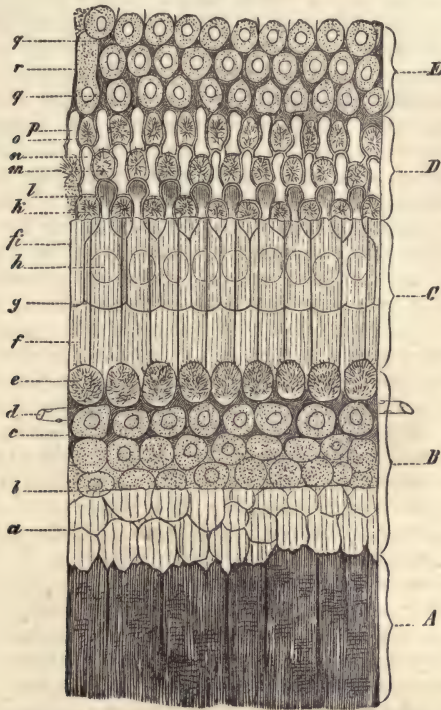 q
r
q
p
o
n
m
l
k
fi
h
g
f
e
d
c
b
a
E
D
C
B
A